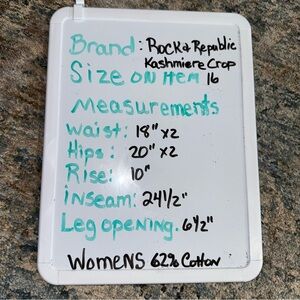 Brand: Rock & Republic
Kashmiere Crop
Size on Item 16
Measurements
Waist: 18" x2
Hips: 20" x2
Rise: 10"
inseam: 24 1/2"
Leg opening. 6 1/2"
Womens 62% Cotton